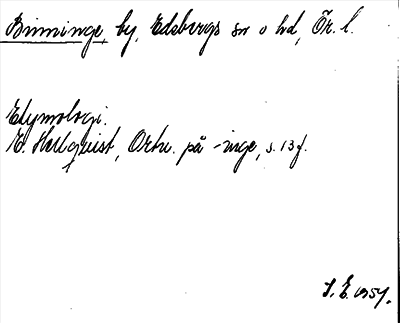 Binninge, by, Edsbergs sn o hd, Ör. l.
Etymologi.
E. Hellquist, Ortn. på -inge, s. 13 f.
S. E. 1957.